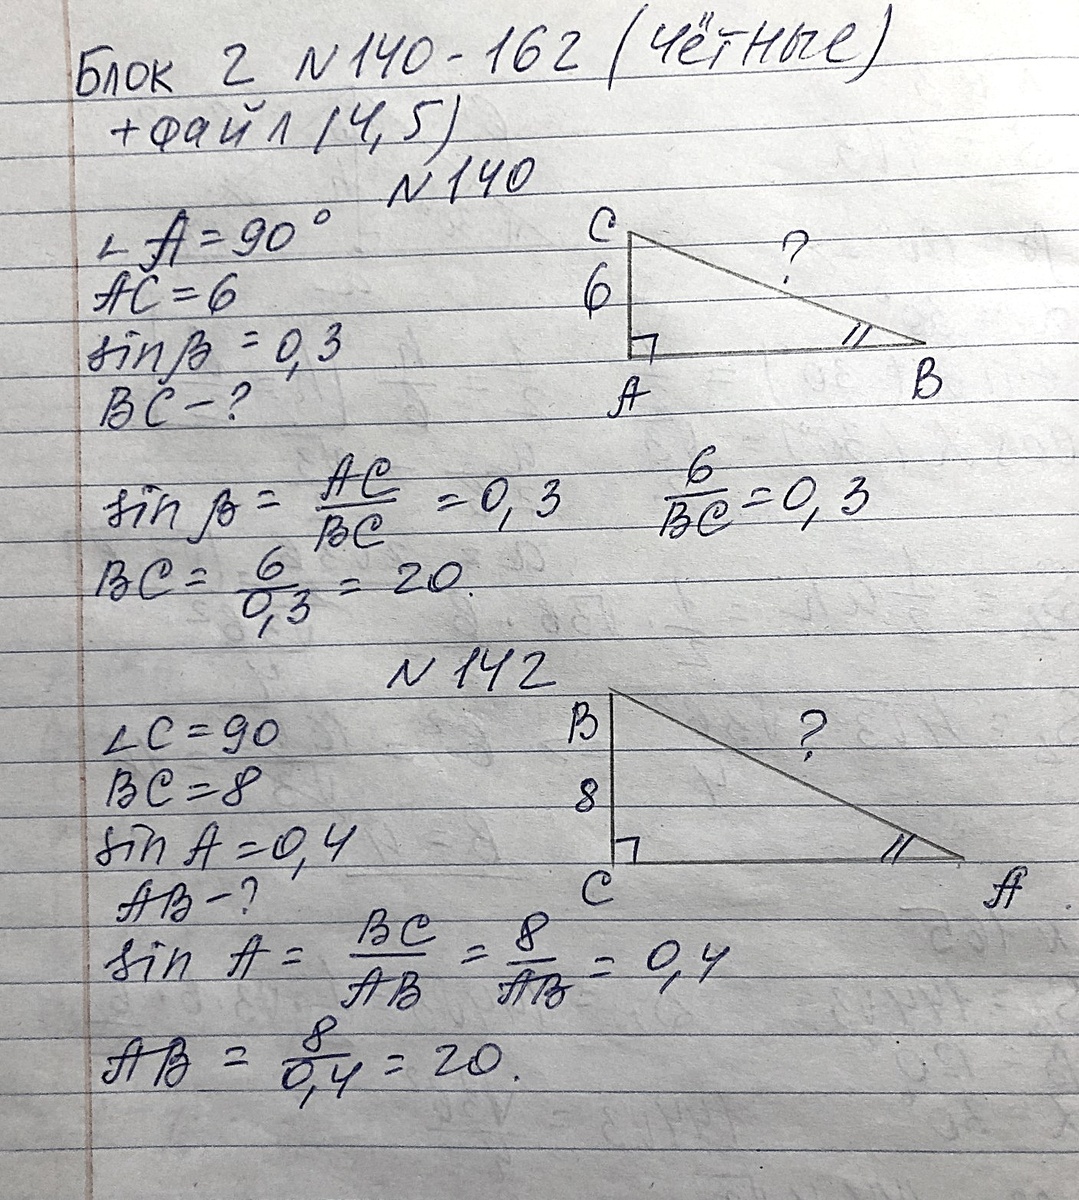 Блок 2 №140-162 (чётные)
+файл (4,5)
№140
∠A=90°
AC=6
sinB=0,3
BC-?
C
?
6
A
B
sin B = AC/BC = 0,3 6/BC = 0,3
BC = 6/0,3 = 20.
№142
∠C=90
BC=8
sin A=0,4
AB-?
B
?
8
C
A
sin A = BC/AB = 8/AB = 0,4
AB = 8/0,4 = 20.